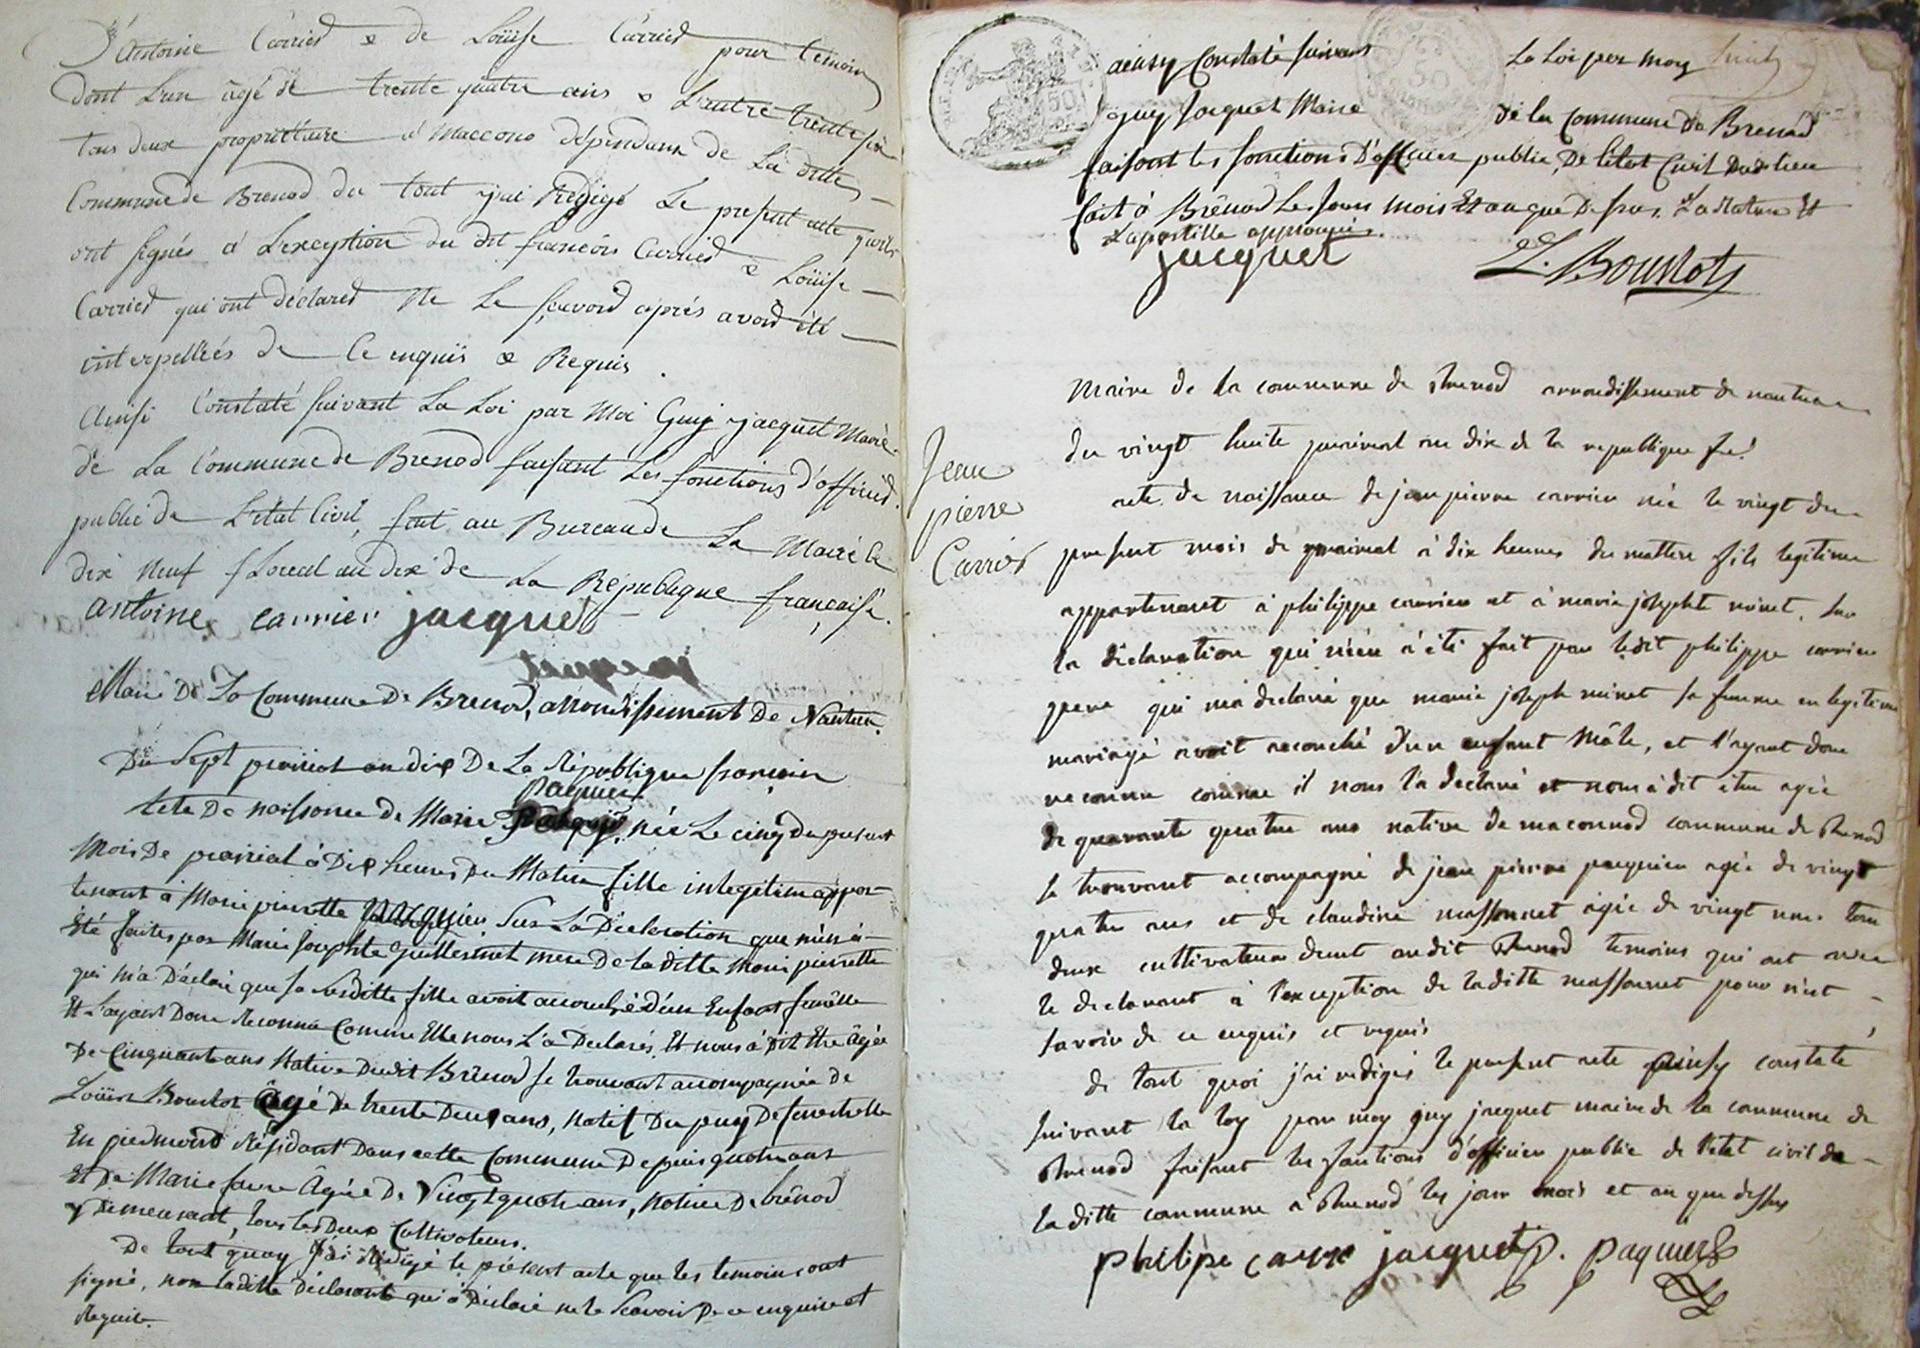 D'Antoine Carried & de Loüise Carried pour témoin
dont L'un âgé de trente quatre ans & L'autre trente six
tous deux propriétaire à Maccono dépendant de La ditte
Commune de Brenod du tout j'ai Redigé Le present acte qu'ils
ont signés à L'exception du dit françois Carried & Loüise
Carried qui ont déclared Ne Le sçavord après avord été
interpellées de Ce enquis & Requis.
Ainsi Constaté suivant La Loi par Moi Guy jacquet Maire
de La Commune de Brenod faisant Les fonctions d'officied
public de L'état Civil, fait au Bureau de La Mairie le
dix neuf floreal an dix de La République française.
antoine carrier jacquet
Mairie De La Commune De Brenod, arrondissement De Nantua.
Du Sept prairial an dix De La République françoise
paquier
Acte De naissance de Marie née Le cinq du present
Mois De prairial à Dix heures Du Matin fille inlegitime appar-
tenant à Marie pierrette paquier, Sur La Déclaration que m'en à
été faites par Marie Josephte Guillermet mere De la ditte Marie pierrette
qui m'a Déclaré que sa susditte fille avoit accouchée d'un Enfant femelle
Et L'ayant Donc Reconnu Comme Elle nous L'a Declarés, Et nous à dit Etre Âgée
De Cinquante ans Native Dudit Brénod se trouvant accompagnée de
Loüis Bourlot Âgé De trente Deux ans, natif Du puy De fenestrelle
En piedmont Résidant Dans cette Commune Depuis quatre ans
Et De Marie favre Âgée De Vingt quatre ans, Native De brénod
y Demeurant, tous les Deux Cultivateurs.
De tout quoy j'ai Rédigé le présent acte que les temoins ont
signé, non la ditte Déclarante qui à Déclaré ne le Scavoir De ce enquise et
Requise.
ainsy Constaté suivant La Loi par moy
Guy Jacquet Maire de la Commune De Brenod
faisant les fonctions D'officier public De l'état Civil Dudit lieu
fait à Brénod Les Jours Mois Et an que Dessus. La Rature Et
L'apostille approuvés.
jacquet L. Bourlot
Maire de la commune de Brenod arrondissement de nantua
du vingt huite prairial an dix de la republique fse
Jean
pierre
Carrier
acte de naissance de jean pierre carrier née le vingt du
present mois de prairial à dix heures du mattin fils legitime
appartenant à philippe carrier et à marie josephte minet, sur
la déclaration qui m'en à été fait par ledit philippe carrier
pere qui m'a declaré que marie joseph minet sa femme en legitime
mariage avoit acouché d'un enfant Mâle, et l'ayant donc
reconnu comme il nous l'a declaré et nous à dit etre agée
de quarante quatre ans native de maconnod commune de Brenod
se trouvant accompagné de jean pierre paquier agée de vingt
quatre ans et de claudine massonnet agée de vingt un ans tous
deux cultivateur demt audit Brenod temoins qui ont avec
le declarant à l'exception de laditte massonnet pour n'est
savoir de ce enquis et requis
de tout quoi j'ai rediges le present acte ainsy constaté
suivant la loy par moy guy jacquet maire de la commune de
Brenod faisant les fontions d'officier public de l'etat civil de
laditte commune à Brenod les jour mois et an que dessus
philipe carrie jacquet J. P. paquier